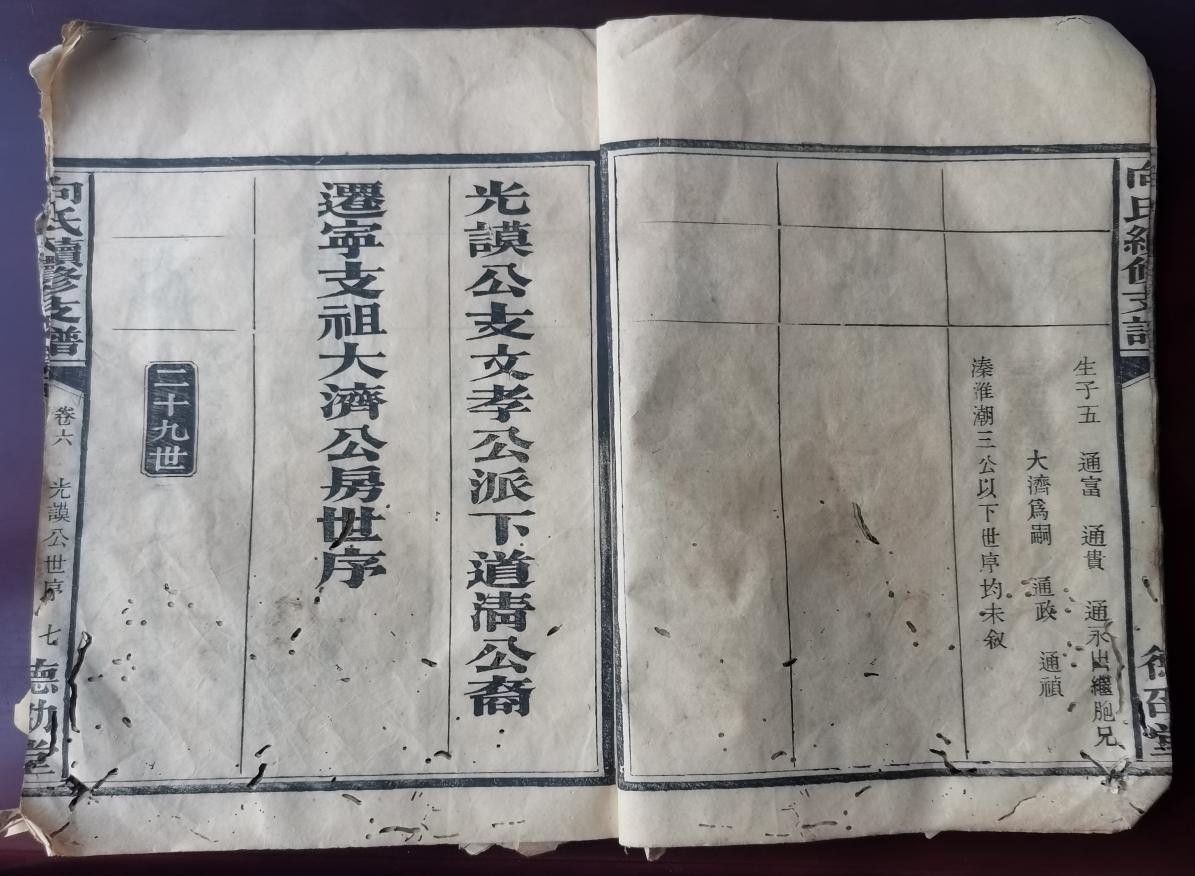 向氏續修支譜
生子五　通富　通貴　通永出繼胞兄
大濟爲嗣　通政　通禎
溱淮潮三公以下世序均未叙
光謨公支文孝公派下道淸公裔
遷寜支祖大濟公房世序
二十九世
向氏續修支譜
卷六　光謨公世序　七
德劭堂